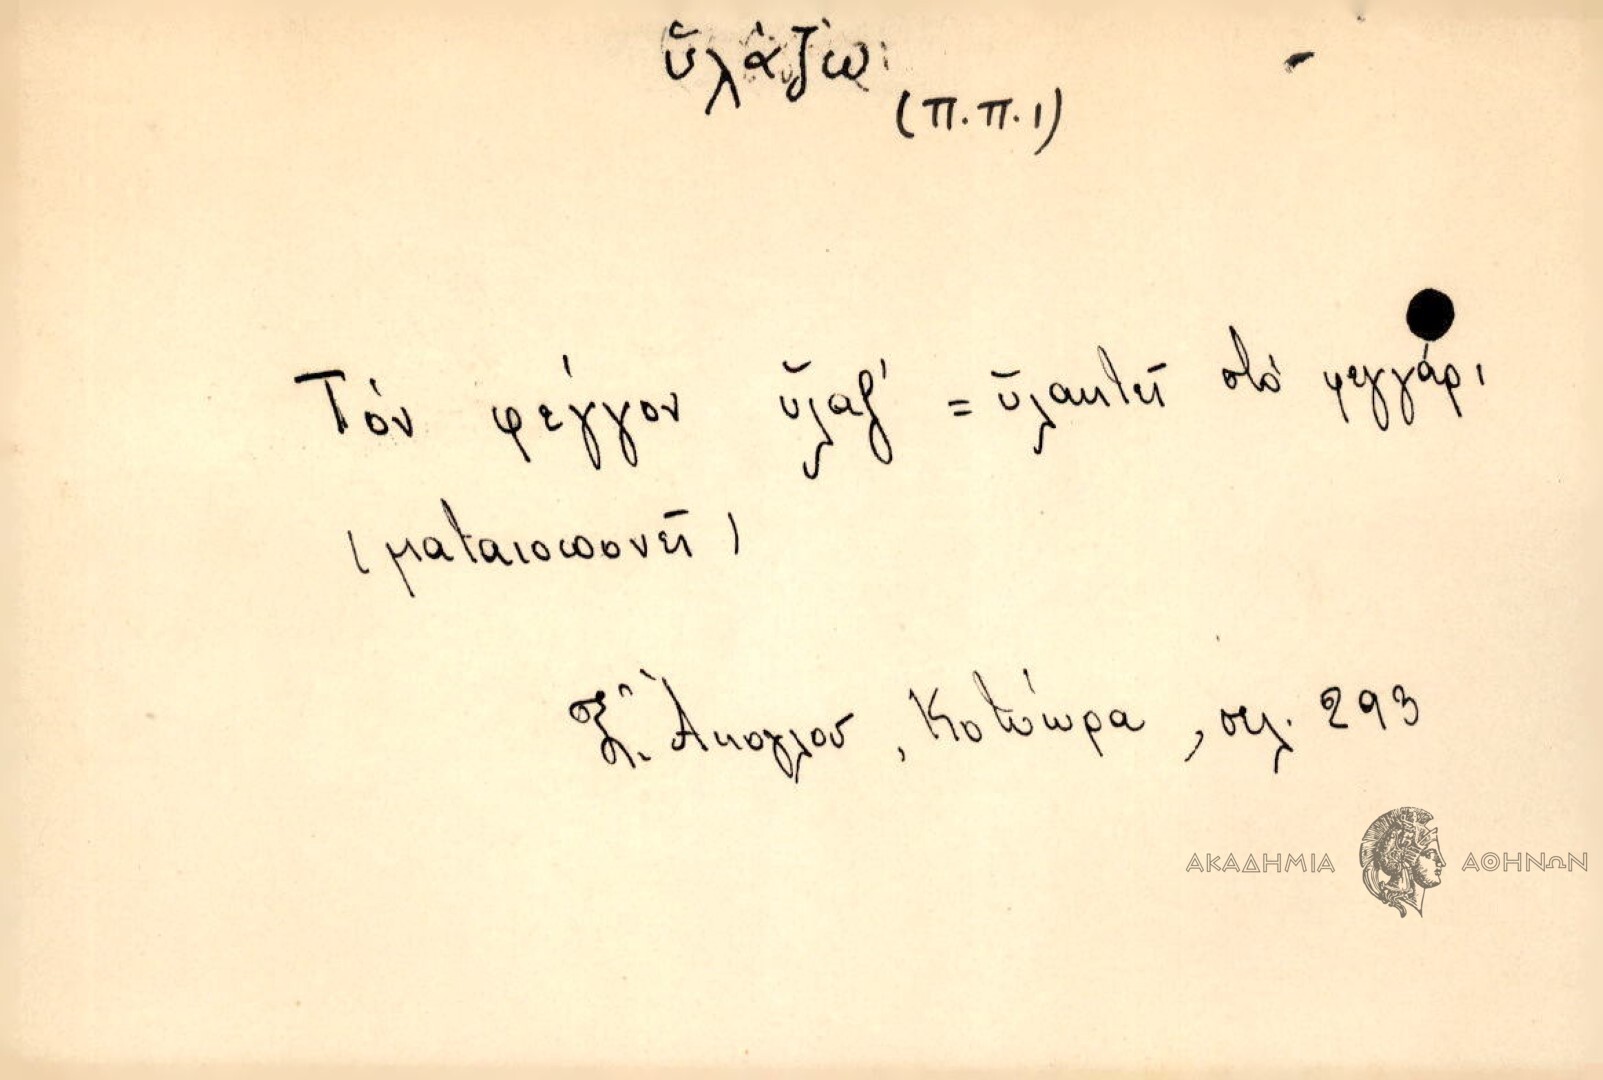 ὑλάζω
(π.π.1)
Τόν φέγγον ὕλαζ' = ὑλακτεῖ στό φεγγάρι
(ματαιοπονεῖ)
Ξ. Ἄκογλου, Κοτύωρα, σελ. 293
ΑΚΑΔΗΜΙΑ ΑΘΗΝΩΝ